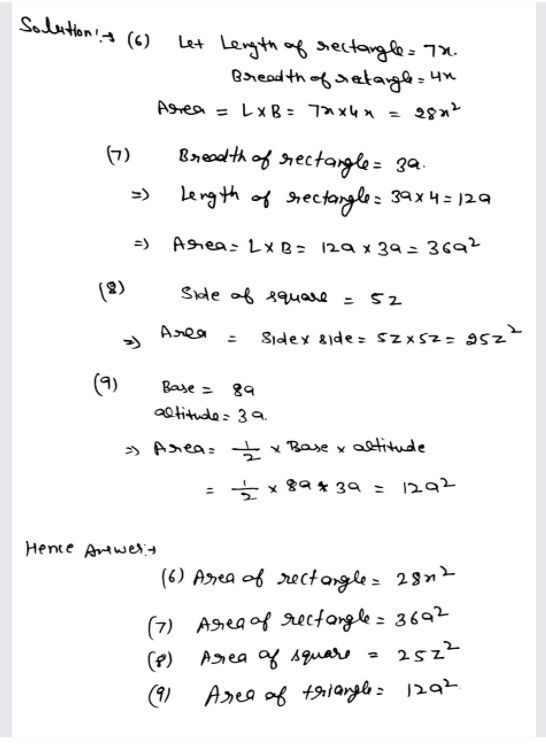 Solution:→ (6) Let Length of rectangle = 7x.
Breadth of rectangle = 4x
Area = L×B = 7x×4x = 28x²
(7) Breadth of rectangle = 3a.
⇒ Length of rectangle = 3a×4 = 12a
⇒ Area = L×B = 12a × 3a = 36a²
(8) Side of square = 5z
⇒ Area = Side× side = 5z×5z = 25z²
(9) Base = 8a
altitude = 3a.
⇒ Area = 1/2 × Base × altitude
= 1/2 × 8a × 3a = 12a²
Hence Answer:→
(6) Area of rectangle = 28x²
(7) Area of rectangle = 36a²
(8) Area of square = 25z²
(9) Area of triangle = 12a²